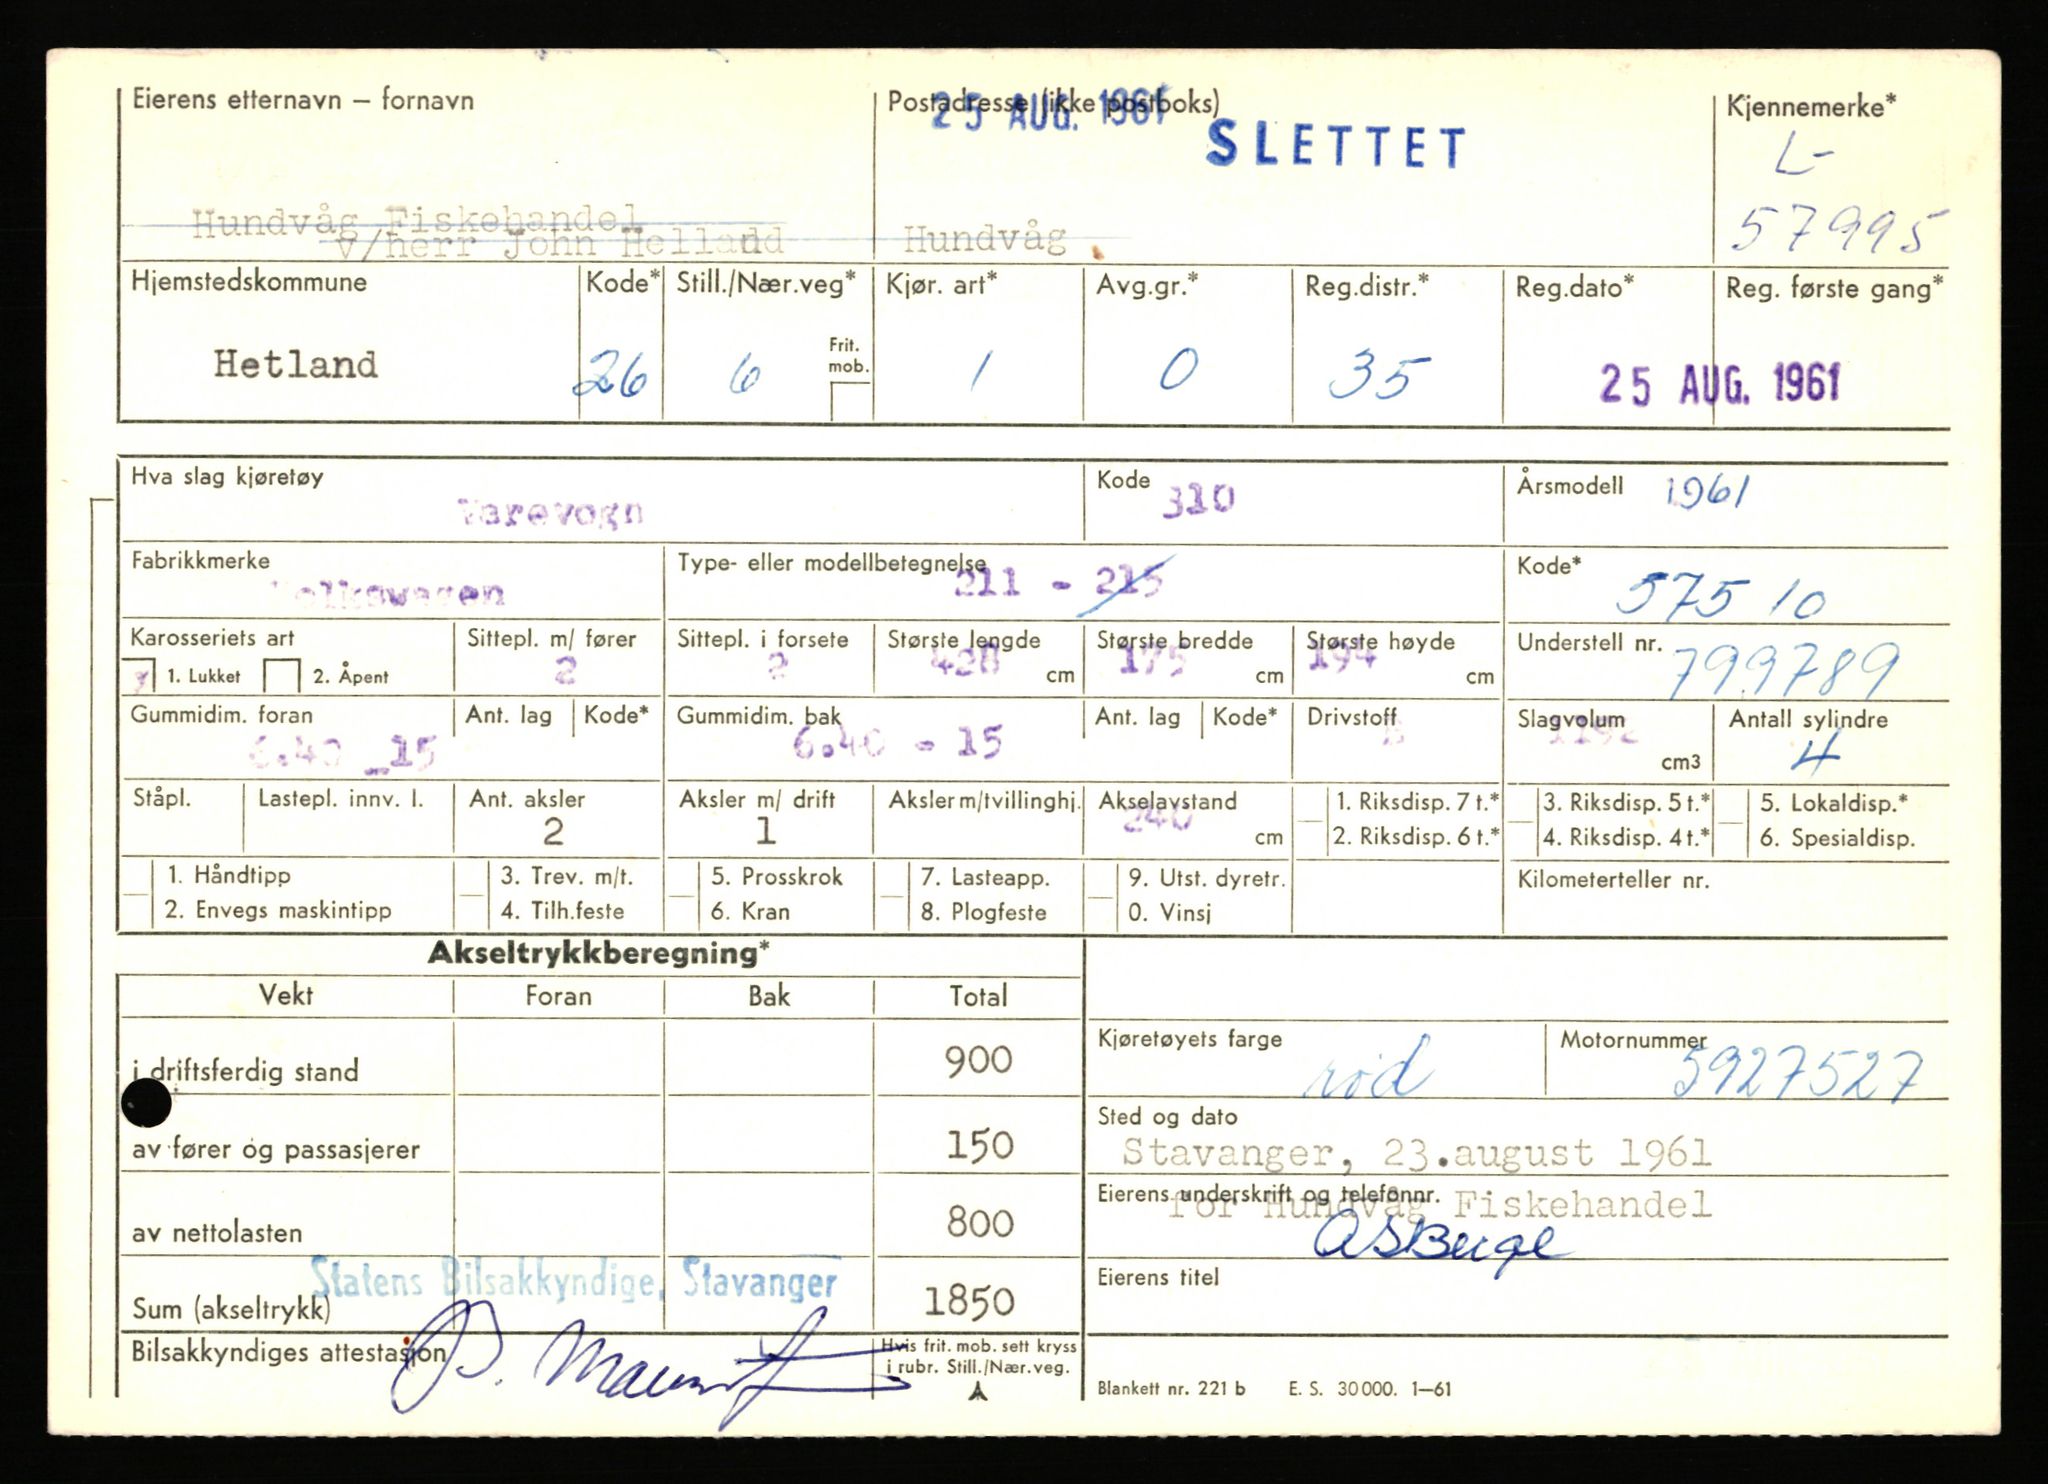 Eierens etternavn – fornavn
Postadresse (ikke postboks)
25 AUG. 1961
SLETTET
Kjennemerke*
L-
57995
Hundvåg Fiskehandel
v/herr John Helland
Hundvåg
Hjemstedskommune Kode* Still./Nær.veg* Kjør. art* Avg.gr.* Reg.distr.* Reg.dato* Reg. første gang*
Frit. mob.
Hetland 26 6 1 0 35 25 AUG. 1961
Hva slag kjøretøy Kode Årsmodell 1961
Varevogn 310
Fabrikkmerke Type- eller modellbetegnelse Kode*
Volkswagen 211 - 215 57510
Karosseriets art Sittepl. m/ fører Sittepl. i forsete Største lengde Største bredde Største høyde Understell nr.
x 1. Lukket 2. Åpent 2 2 428 cm 175 cm 194 cm 799789
Gummidim. foran Ant. lag Kode* Gummidim. bak Ant. lag Kode* Drivstoff Slagvolum Antall sylindre
6.40 _15 6.40 - 15 B 1192 cm3 4
Ståpl. Lastepl. innv. l. Ant. aksler Aksler m/ drift Aksler m/tvillinghj. Akselavstand 1. Riksdisp. 7 t.* 3. Riksdisp. 5 t.* 5. Lokaldisp.*
2 1 240 cm 2. Riksdisp. 6 t.* 4. Riksdisp. 4 t.* 6. Spesialdisp.
1. Håndtipp 3. Trev. m/t. 5. Prosskrok 7. Lasteapp. 9. Utst. dyretr. Kilometerteller nr.
2. Envegs maskintipp 4. Tilh.feste 6. Kran 8. Plogfeste 0. Vinsj
Akseltrykkberegning*
Vekt Foran Bak Total
i driftsferdig stand 900
av fører og passasjerer 150
av nettolasten 800
Statens Bilsakkyndige, Stavanger
Sum (akseltrykk) 1850
Bilsakkyndiges attestasjon
Hvis frit. mob. sett kryss
i rubr. Still./Nær.veg.
Kjøretøyets farge rød
Motornummer 5927527
Sted og dato
Stavanger, 23.august 1961
Eierens underskrift og telefonnr.
for Hundvåg Fiskehandel
Eierens titel
Blankett nr. 221 b E. S. 30000. 1–61